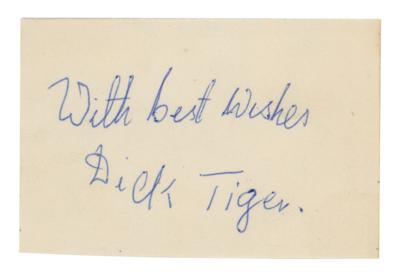 With best wishes
Dick Tiger.